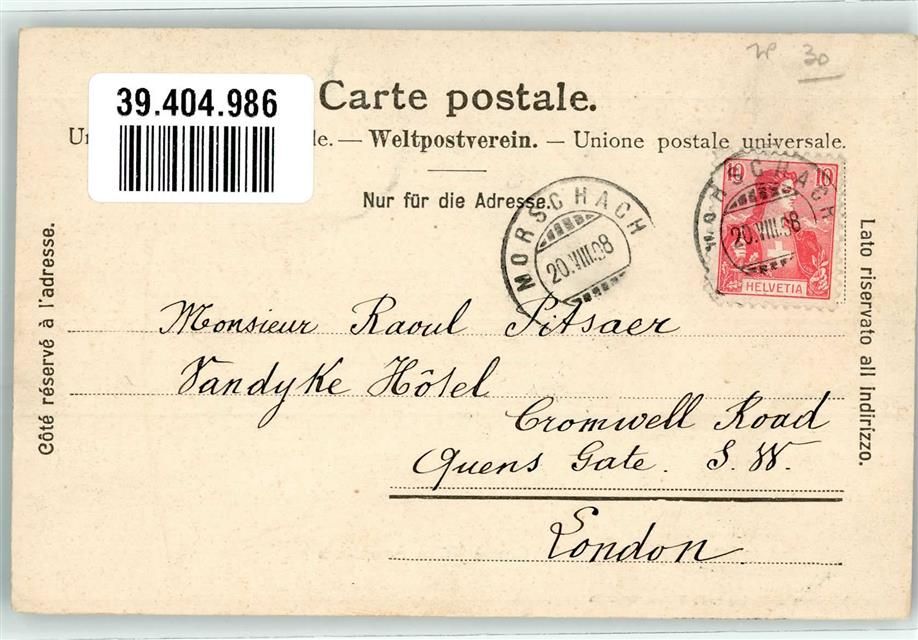 39.404.986
Carte postale.
le. — Weltpostverein. — Unione postale universale.
Nur für die Adresse.
30
MORSCHACH
20.VIII.08
MORSCHACH
20.VIII.08
10 10
HELVETIA
Côté réservé à l'adresse.
Lato riservato all indirizzo.
Monsieur Raoul Pitsaer
Vandyke Hôtel
Cromwell Road
Quens Gate. S. W.
London